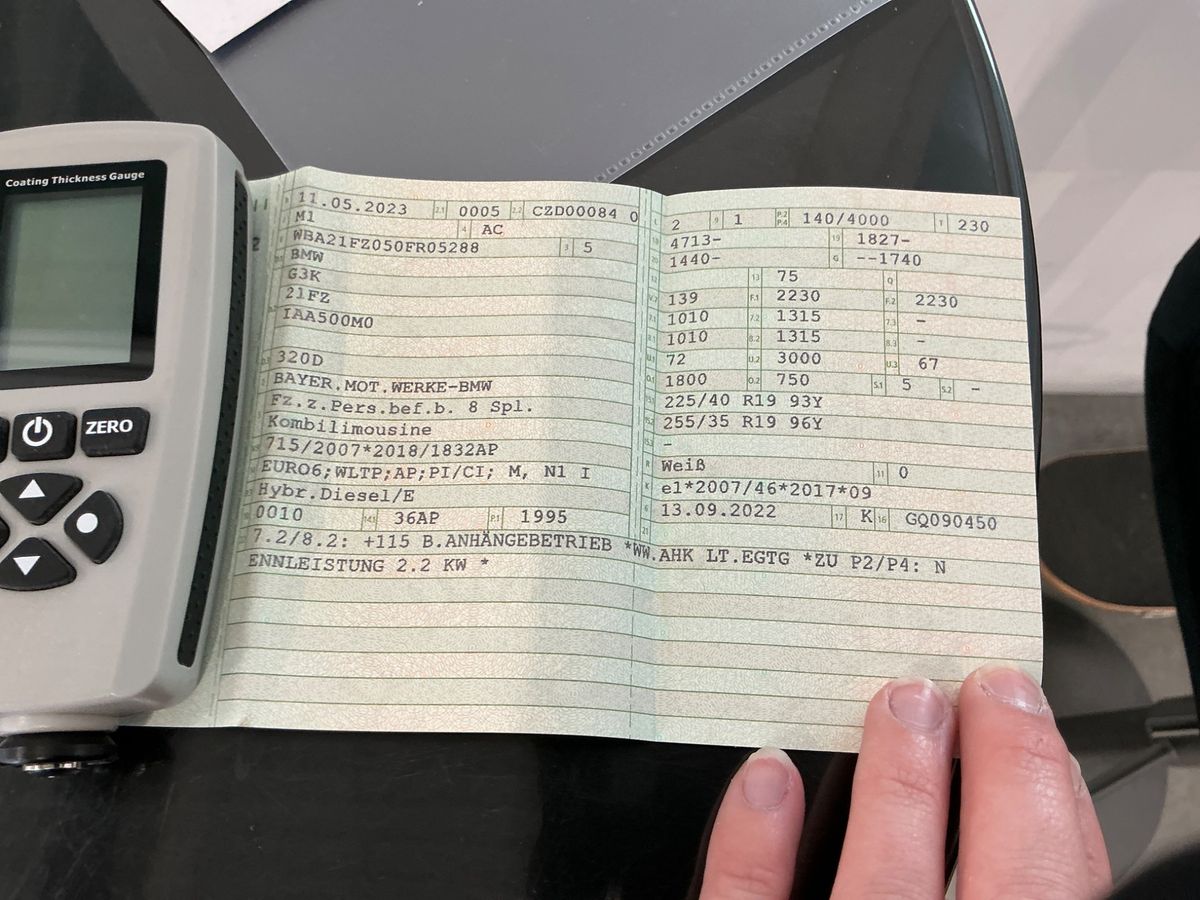 Coating Thickness Gauge
ZERO
11.05.2023 2.1 0005 2.2 CZD00084 0
M1 4 AC
WBA21FZ050FR05288 3 5
BMW
G3K
21FZ
IAA500M0
320D
BAYER.MOT.WERKE-BMW
Fz.z.Pers.bef.b. 8 Spl.
Kombilimousine
715/2007*2018/1832AP
EURO6;WLTP;AP;PI/CI; M, N1 I
Hybr.Diesel/E
0010 14.1 36AP P.1 1995
2 9 1 P.2 P.4 140/4000 T 230
4713- 19 1827-
1440- G --1740
13 75 Q
V.7 139 F.1 2230 F.2 2230
7.1 1010 7.2 1315 7.3 -
8.1 1010 8.2 1315 8.3 -
U.1 72 U.2 3000 U.3 67
O.1 1800 O.2 750 S.1 5 S.2 -
225/40 R19 93Y
255/35 R19 96Y
-
R Weiß 11 0
K e1*2007/46*2017*09
6 13.09.2022 17 K 16 GQ090450
21
7.2/8.2: +115 B.ANHÄNGEBETRIEB *WW.AHK LT.EGTG *ZU P2/P4: N
ENNLEISTUNG 2.2 KW *